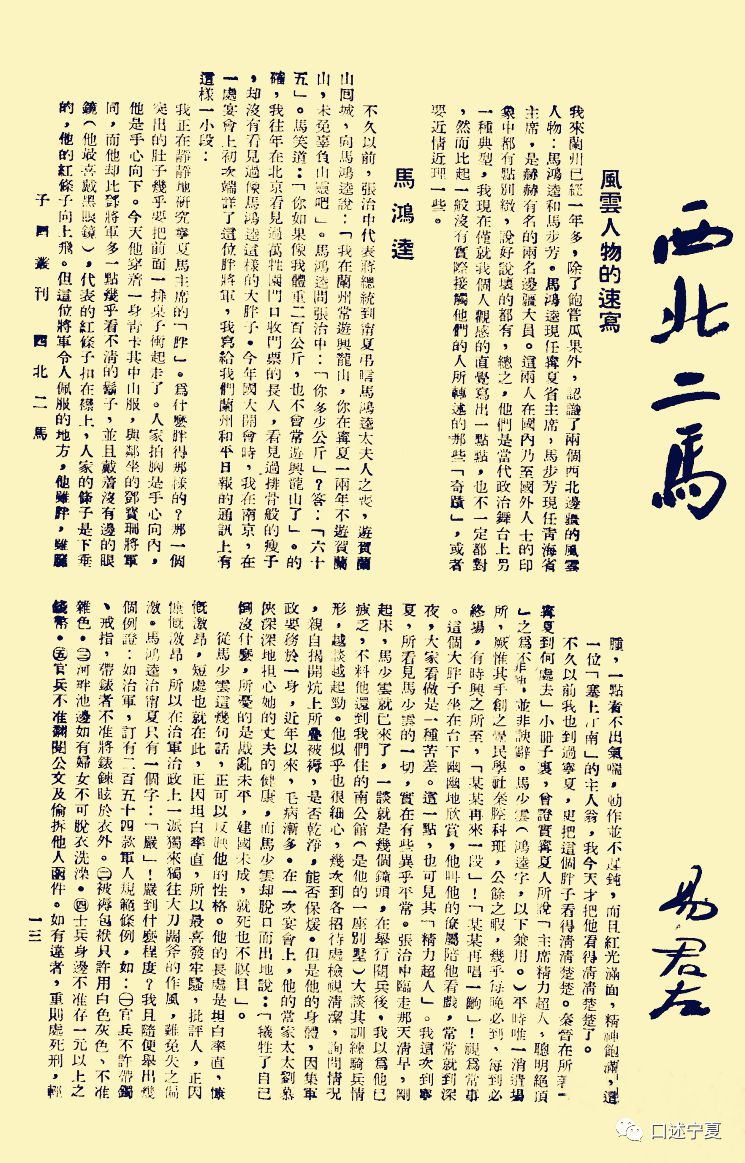 西北二馬
易君左
風雲人物的速寫
我來蘭州已經一年多,除了飽嘗瓜果外,認識了兩個西北邊疆的風雲
人物:馬鴻逵和馬步芳。馬鴻逵現任寗夏省主席,馬步芳現任青海省
主席,是赫赫有名的兩名邊疆大員。這兩人在國內乃至國外人士的印
象中都有點別緻,說好說壞的都有,總之,他們是當代政治舞台上另
一種典型,我現在僅就我個人觀感的直覺寫出一點點,也不一定都對
,然而比起一般沒有實際接觸他們的人所轉述的那些「奇蹟」,或者
要近情近理一些。
馬鴻逵
不久以前,張治中代表蔣總統到甯夏弔唁馬鴻逵太夫人之喪,遊賀蘭
山囘城,向馬鴻逵說:「我在蘭州常遊興龍山,你在寗夏一兩年不遊賀蘭
山,未免辜負山靈吧」。馬鴻逵問張治中:「你多少公斤」?客:「六十
五」。馬笑道:「你如果像我體重二百公斤,也不會常遊興龍山了」。的
確,我往年在北京看見過萬牲園門口收門票的長人,看見過排骨般的瘦子
,却沒有看見過像馬鴻逵這樣的大胖子。今年國大開會時,我在南京,在
一處宴會上初次端詳了這位胖將軍,我寫給我們蘭州和平日報的通訊上有
這樣一小段:
我正在靜靜地研究寗夏馬主席的「胖」。爲什麼胖得那樣的?那一個
突出的肚子幾乎要把前面一排桌子衝起走了。人家拍胸是手心向內,
他是手心向下。今天他穿着一身靑卡其中山服,與鄰坐的鄧寶珊將軍
同,而他却比鄧將軍多一點幾乎看不清的鬍子,並且戴着沒有邊的眼
鏡(他最喜戴黑眼鏡),代表的紅條子扣在襟上,人家的條子是下垂
的,他的紅條子向上飛。但這位將軍令人佩服的地方,他雖胖,雖
腫,一點看不出氣喘,動作並不遲鈍,而且紅光滿面,精神飽滿,這
一位「塞上江南」的主人翁,我今天才把他看得清清楚楚了。
不久以前我也到過寗夏,更把這個胖子看得淸淸楚楚。秦晉在所著「
寗夏到何處去」小冊子裏,曾證實寗夏人所說「主席精力超人,聰明絕頂
」之爲不虛,並非諛辭。馬少雲(鴻逵字,以下兼用。)平時唯一消遣場
所,厥惟其手創之覺民學社秦腔科班,公餘之暇,幾乎每晚必到,每到必
終場,有時興之所至,「某某再來一段」!「某某再唱一齣」!視爲常事
。這個大胖子坐在台下幽幽地欣賞,他叫他的僚屬陪他看戲,常常就到深
夜,大家看做是一種苦差。這一點,也可見其「精力超人」。我這次到寗
夏,所看見馬少雲的一切,實在有些異乎平常。張治中臨走那天淸早,剛
起床,馬少雲就已來了,一談就是幾個鐘頭,在舉行閱兵後,我以爲他已
疲乏,不料他還到我們住的南公館(是他的一座別墅)大談其訓練騎兵情
形,越談越起勁。他似乎也很細心,幾次到各招待處檢視清潔,詢問情況
,親自揭開炕上所疊被褥,是否乾淨,能否保煖。但是他的身體,因集軍
政要務於一身,近年以來,毛病漸多。在一次宴會上,他的當家太太劉慕
俠深深地担心她的丈夫的健康,而馬少雲却脫口而出地說:「犧牲了自己
倒沒什麽,所憂的是戡亂未平,建國未成,就死也不瞑目」。
從馬少雲這幾句話,正可以反映他的性格。他的長處是坦白率直,慷
慨激昂,短處也就在此,正因坦白率直,所以最喜發牢騷,批評人,正因
慷慨激昂,所以在治軍治政上一派獨來獨往大刀闊斧的作風,難免失之偏
激。馬鴻逵治甯夏只有一個字:「嚴」!嚴到什麼程度?我且隨便舉出幾
個例證:如治軍,訂有二百五十四款軍人規範條例,如:㊀官兵不許帶鐲
、戒指,帶錶者不准將錶鍊眩於衣外。㊁被褥包袱只許用白色灰色、不准
雜色。㊂河畔池邊如有婦女不可脫衣洗澡。㊃士兵身邊不准存一元以上之
錢幣。㊄官兵不准翻閱公文及偷拆他人函件。如有違者,重則處死刑,輕
子曰叢刊 西北二馬
一三
口述宁夏